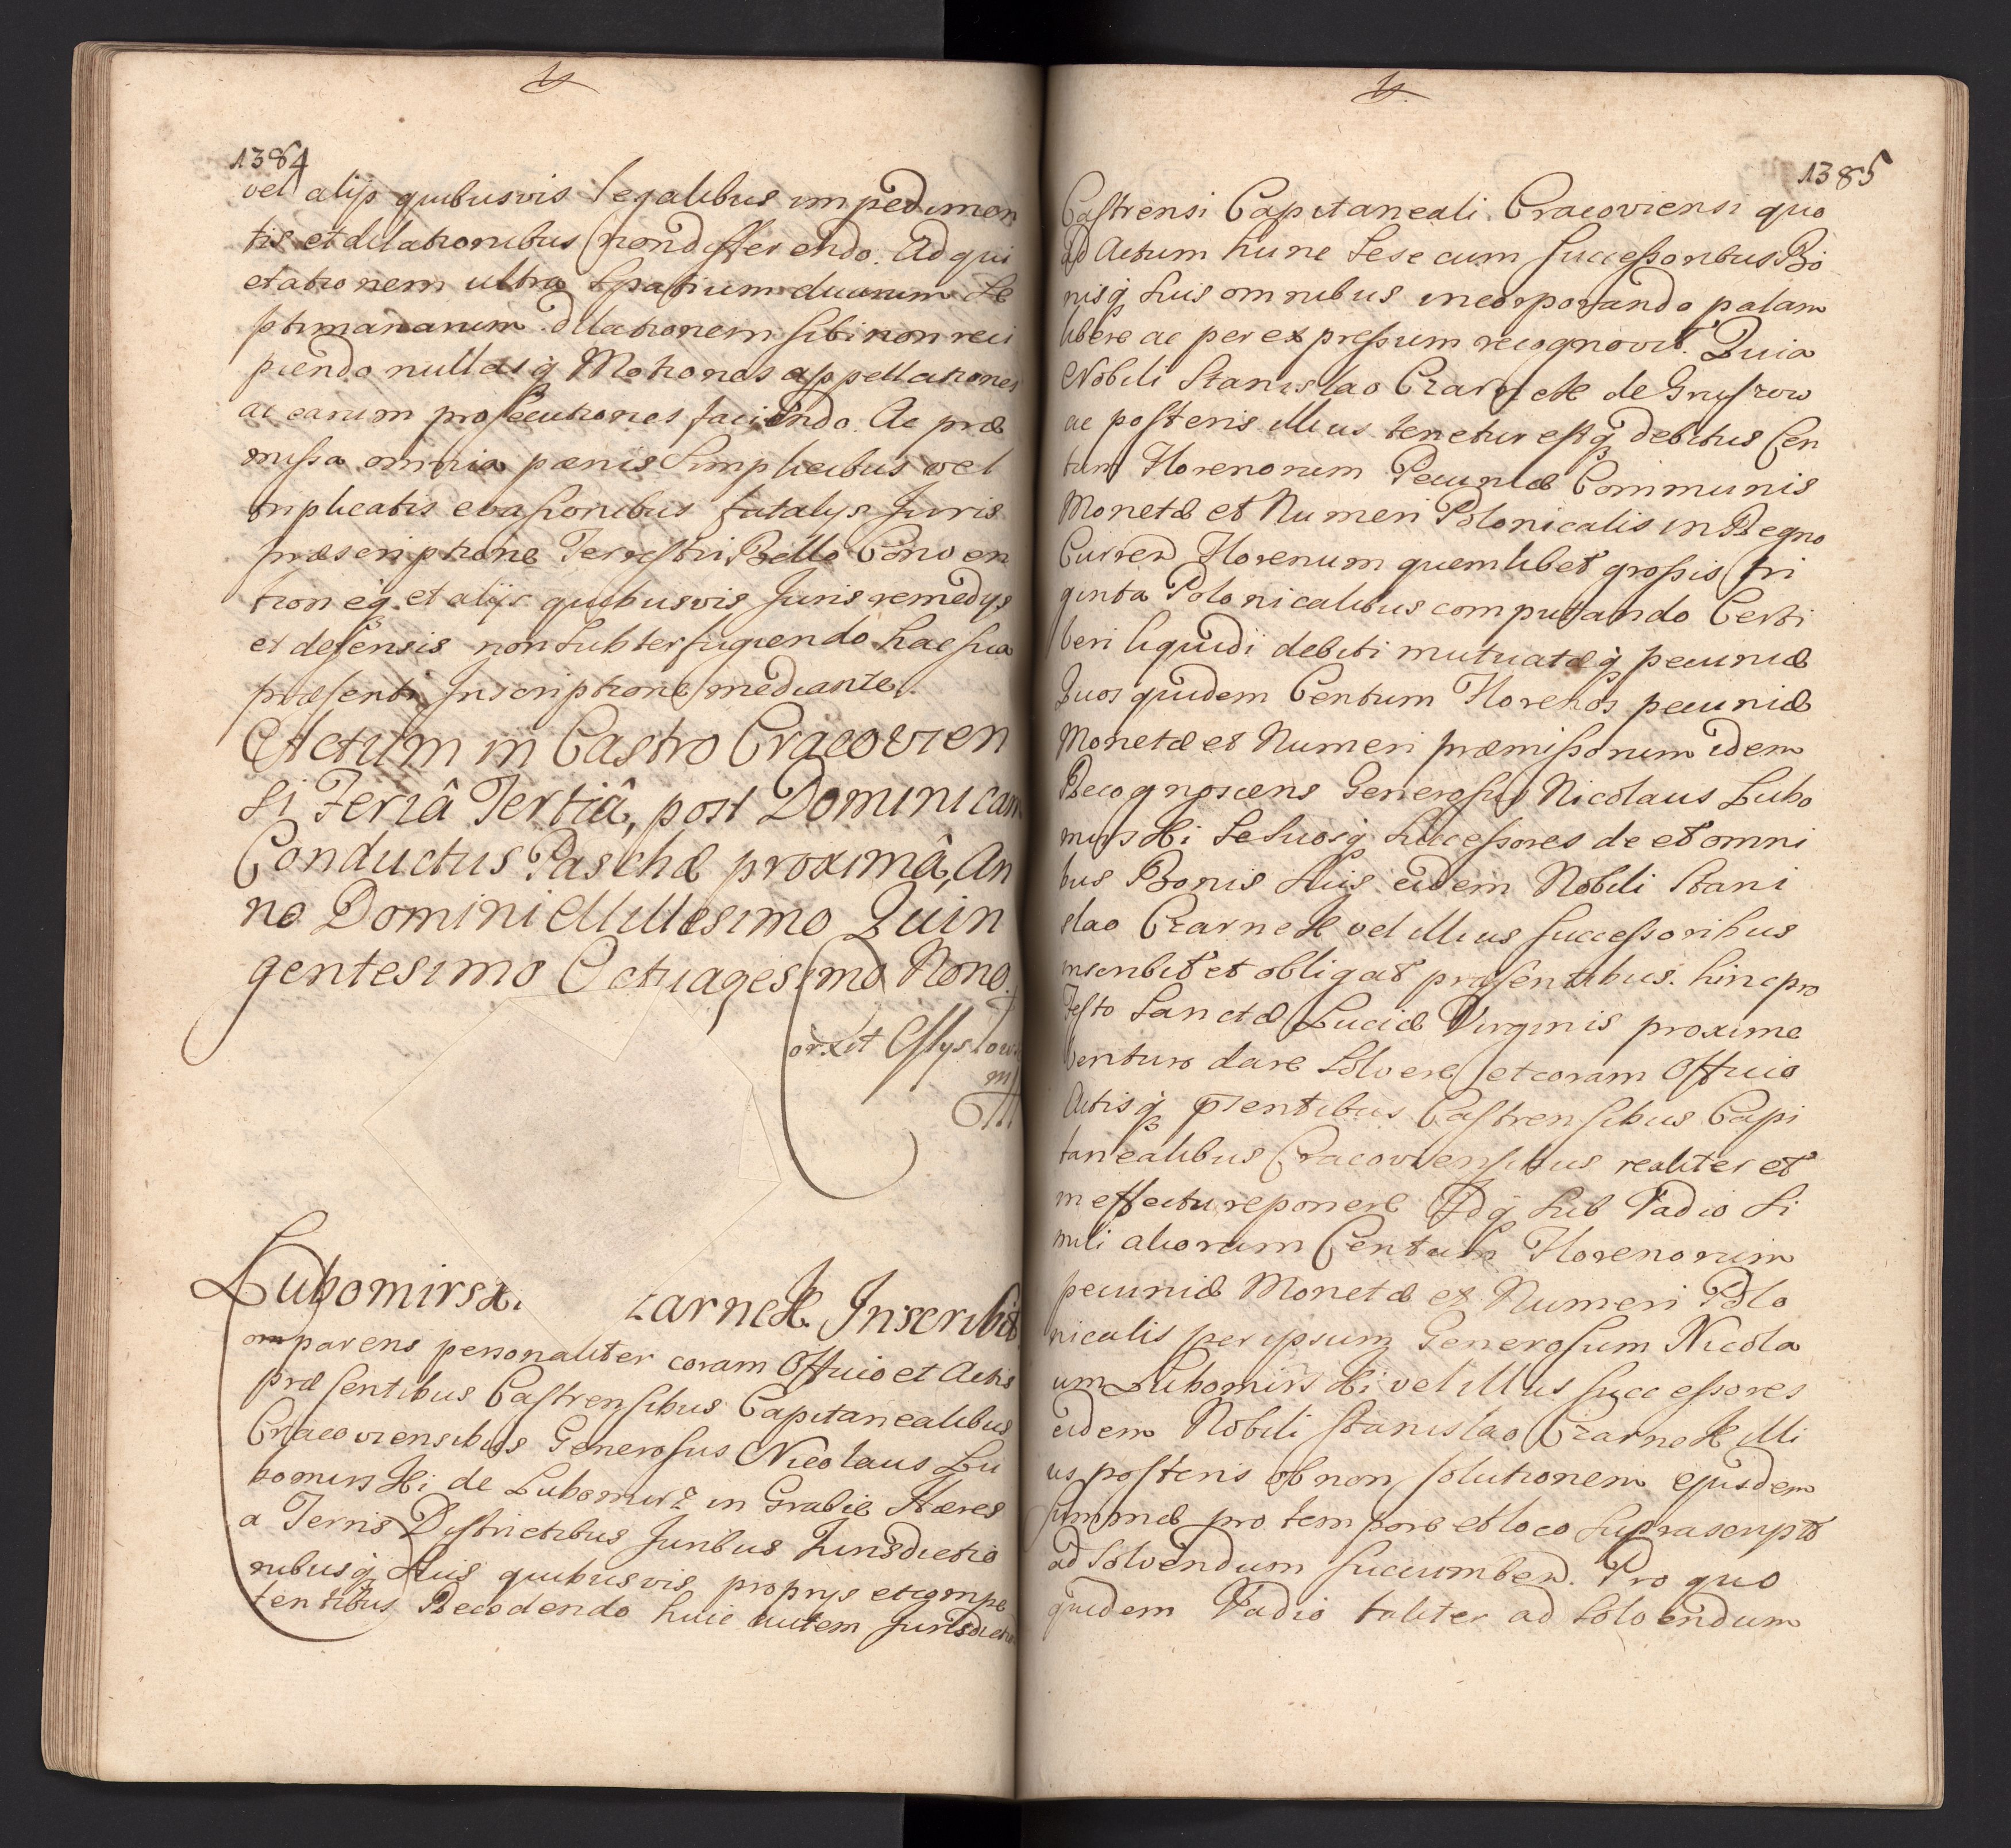 1384
vel alijs quibusvis legalibus impedimen
tis et dilationibus non differendo. Ad qui
etationem ultra Spatium duarum Se
ptimanarum dilationem sibi non reci
piendo nullasq Motiones appellationes
ac earum prosecutiones faciendo. Ac præ
missa omnia pænis Simplicibus vel
triplicatis evasionibus fatalys Juris
præscriptione Terrestri Bello Conven
tioneq et alijs quibusvis Juris remedys
et defensis non Subterfugiendo hac sua
præsenti Inscriptione mediante.
Actum in Castro Cracovien
si Feriâ Tertiâ, post Dominicam
Conductus Paschæ proximâ, An
no Domini Millesimo Quin
gentesimo Octuagesimo Nono.
Lubomirski zarnek Inscribit
omparens personaliter coram Officio et Actis
præsentibus Castrensibus Capitanealibus
Cracoviensibus Generosus Nicolaus Lu
bomirski de Lubomirz in Grabie Hæres
a Terris Districtibus Juribus Jurisdictio
nibusq Suis quibusvis proprys et compe
tentibus Recedendo huic autem Jurisdictio
1385
Castrensi Capitaneali Cracoviensi quo
ad Actum hunc Sese cum Successoribus Bo
nisq Suis omnibus incorporando palam
libere ac per expressum recognovit. Quia
Nobili Stanislao Czarnek de Gruszow
ac posteris illius tenetur estq debitus Cen
tum Florenorum Pecuniæ Communis
Monetæ et Numeri Polonicalis in Regno
Curren Florenum quemlibet grossis tri
ginta Polonicalibus computando Certi
veri liquidi debiti mutuatæq pecuniæ
Quos quidem Centum Florenos pecuniæ
Monetæ et Numeri præmissorum idem
Recognoscens Generosus Nicolaus Lubo
mirski Se Suosq Successores de et omni
bus Bonis Suis eidem Nobili Stani
slao Czarnek vel illius Successoribus
inscribit et obligat præsentibus. hinc pro
Festo Sanctæ Luciæ Virginis proxime
venturo dare Solvere et coram Officio
Actisq pntibus Castrensibus Capi
tanealibus Cracoviensibus realiter et
in effectu reponere Idq Sub Vadio Si
mili aliorum Centum Florenorum
pecuniæ Monetæ et Numeri Polo
nicalis per ipsum Generosum Nicola
um Lubomirski vel illius Successores
eidem Nobili Stanislao Czarnek illi
us posteris ob non solutionem ejusdem
Summæ pro tempore et loco Suprascripto
ad Solvendum Succumben. Pro quo
quidem Vadio taliter ad Solvendum